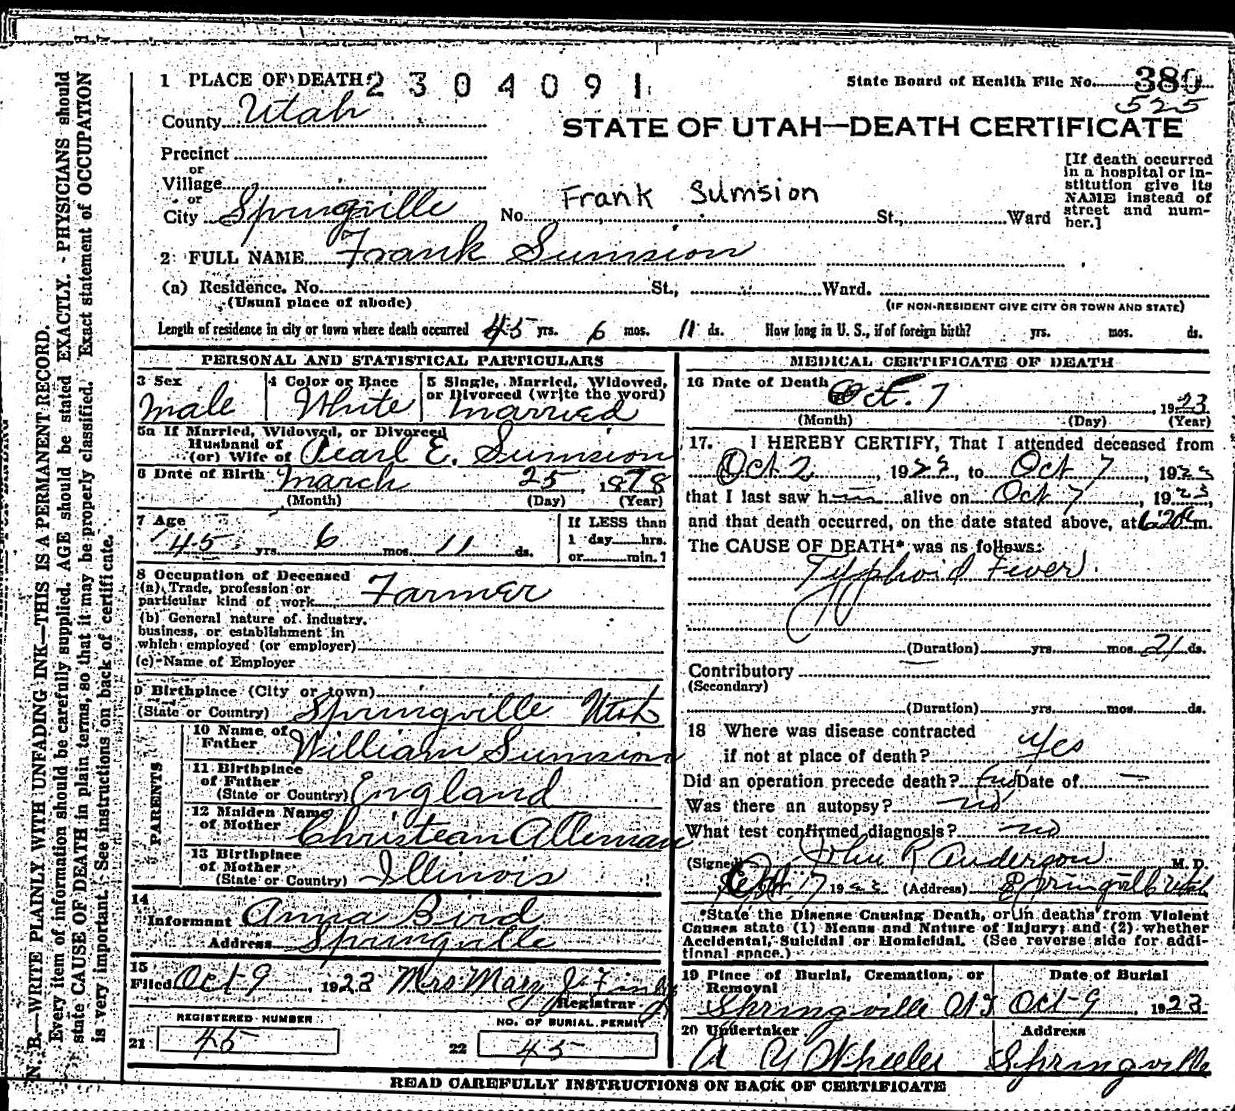 1 PLACE OF DEATH 2 3 0 4 0 9 1
State Board of Health File No. 380
525
County Utah
STATE OF UTAH—DEATH CERTIFICATE
Precinct
or
Village
or
City Springville No. Frank Sumsion St., Ward
[If death occurred
in a hospital or in-
stitution give its
NAME instead of
street and num-
ber.]
2 FULL NAME Frank Sumsion
(a) Residence. No. St., Ward.
(Usual place of abode) (IF NON-RESIDENT GIVE CITY OR TOWN AND STATE)
Length of residence in city or town where death occurred 45 yrs. 6 mos. 11 ds. How long in U. S., if of foreign birth? yrs. mos. ds.
PERSONAL AND STATISTICAL PARTICULARS
3 Sex 4 Color or Race 5 Single, Married, Widowed,
or Divorced (write the word)
Male White Married
5a If Married, Widowed, or Divorced
Husband of
(or) Wife of Pearl E. Sumsion
6 Date of Birth March 25, 1878
(Month) (Day) (Year)
7 Age
45 yrs. 6 mos. 11 ds.
If LESS than
1 day hrs.
or min.?
8 Occupation of Deceased
(a) Trade, profession or
particular kind of work Farmer
(b) General nature of industry,
business, or establishment in
which employed (or employer)
(c) Name of Employer
9 Birthplace (City or town)
(State or Country) Springville Utah
PARENTS
10 Name of
Father William Sumsion
11 Birthplace
of Father
(State or Country) England
12 Maiden Name
of Mother Christean Alleman
13 Birthplace
of Mother
(State or Country) Illinois
14
Informant Anna Bird
Address Springville
15
Filed Oct-9, 1923 Mrs Mary J.
Registrar
REGISTERED NUMBER NO. OF BURIAL PERMIT
21 45 22 45
MEDICAL CERTIFICATE OF DEATH
16 Date of Death Oct. 7 1923
(Month) (Day) (Year)
17. I HEREBY CERTIFY, That I attended deceased from
Oct 2, 1923, to Oct 7, 1923
that I last saw him alive on Oct 7, 1923,
and that death occurred, on the date stated above, at 6:20 a m.
The CAUSE OF DEATH* was as follows:
Typhoid Fever
(Duration) yrs. mos. 21 ds.
Contributory
(Secondary)
(Duration) yrs. mos. ds.
18 Where was disease contracted
if not at place of death? yes
Did an operation precede death? Date of —
Was there an autopsy? no
What test confirmed diagnosis? no
(Signed) John R Anderson M. D.
7 1923 (Address) Springville Utah
*State the Disease Causing Death, or in deaths from Violent
Causes state (1) Means and Nature of Injury; and (2) whether
Accidental, Suicidal or Homicidal. (See reverse side for addi-
tional space.)
19 Place of Burial, Cremation, or
Removal Date of Burial
Springville Oct-9 1923
20 Undertaker Address
A Y Wheeler Springville
READ CAREFULLY INSTRUCTIONS ON BACK OF CERTIFICATE
N. B.—WRITE PLAINLY WITH UNFADING INK—THIS IS A PERMANENT RECORD.
Every item of information should be carefully supplied. AGE should be stated EXACTLY. PHYSICIANS should
state CAUSE OF DEATH in plain terms, so that it may be properly classified. Exact statement of OCCUPATION
is very important. See instructions on back of certificate.